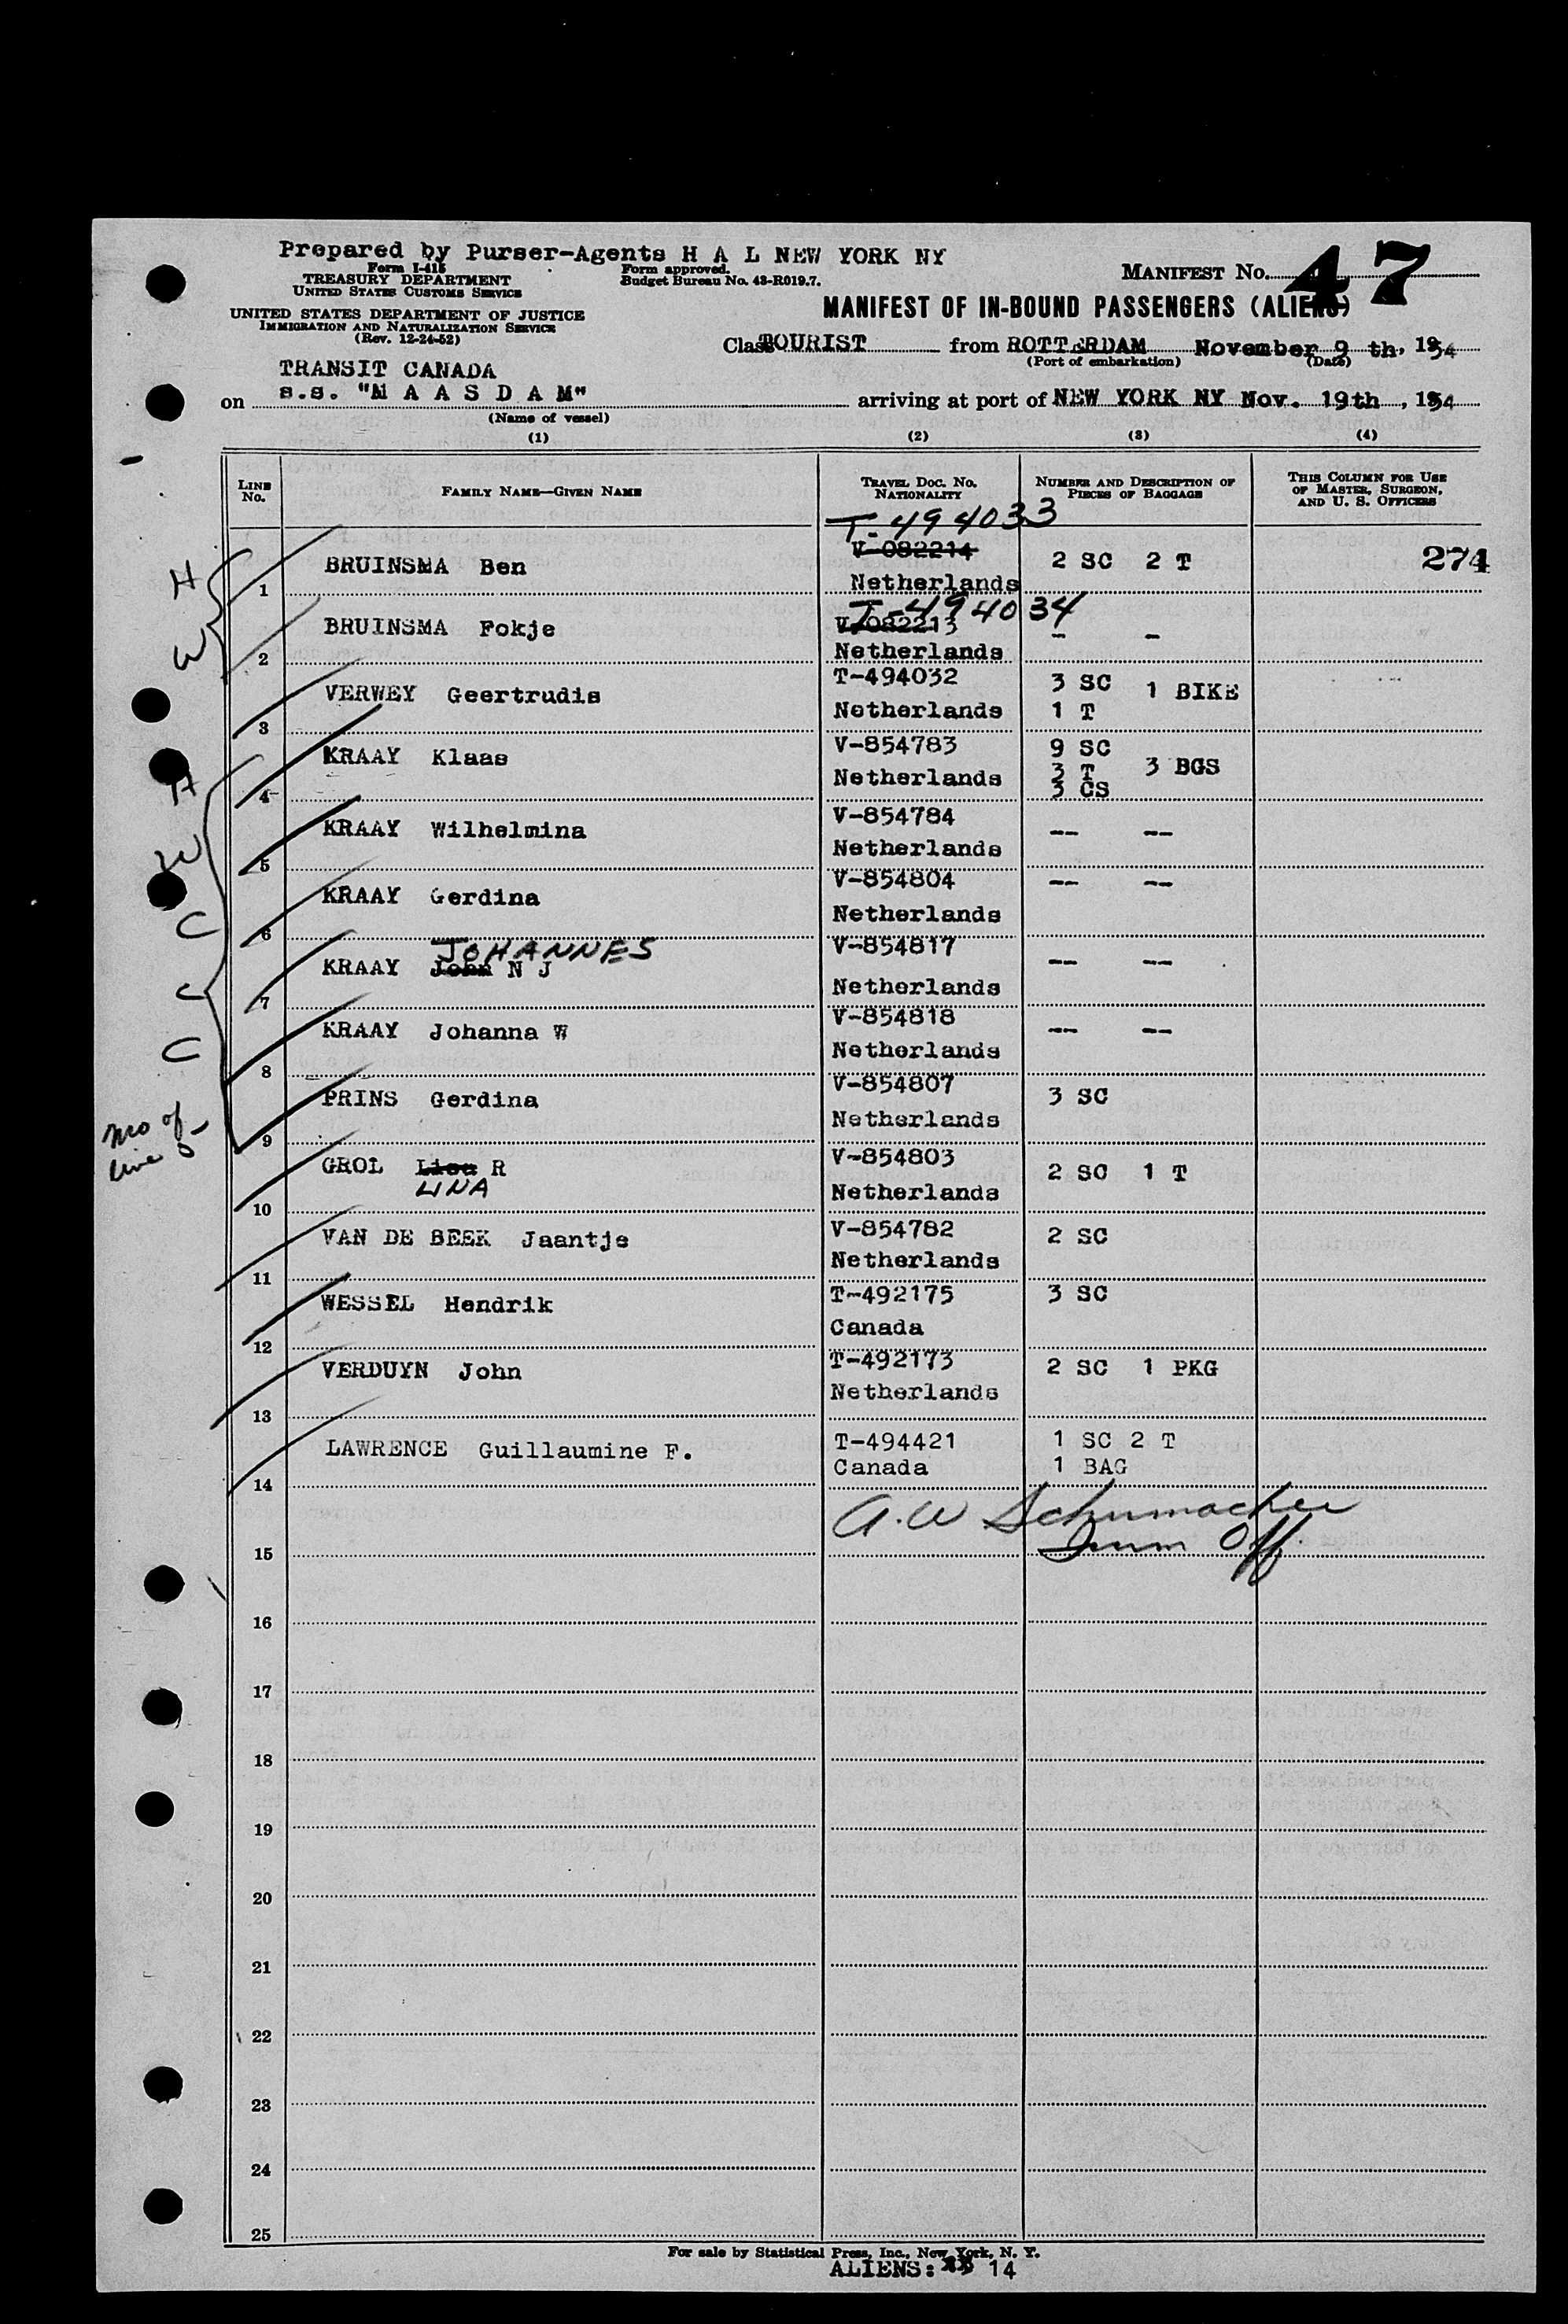 Prepared by Purser-Agents H A L NEW YORK NY
Form I-415
TREASURY DEPARTMENT
UNITED STATES CUSTOMS SERVICE
Form approved.
Budget Bureau No. 43-R019.7.
MANIFEST No. 47
UNITED STATES DEPARTMENT OF JUSTICE
IMMIGRATION AND NATURALIZATION SERVICE
(Rev. 12-24-52)
MANIFEST OF IN-BOUND PASSENGERS (ALIENS)
Class TOURIST from ROTTERDAM November 9 th, 1954
(Port of embarkation) (Date)
TRANSIT CANADA
on s.s. "M A A S D A M" arriving at port of NEW YORK NY Nov. 19th, 1954
(Name of vessel)
(1) (2) (3) (4)
LINE No. FAMILY NAME—GIVEN NAME TRAVEL DOC. NO. NATIONALITY NUMBER AND DESCRIPTION OF PIECES OF BAGGAGE THIS COLUMN FOR USE OF MASTER, SURGEON, AND U. S. OFFICERS
T-494033
V-082214
H 1 BRUINSMA Ben Netherlands 2 SC 2 T 274
T-494034
V-082213
W 2 BRUINSMA Fokje Netherlands - -
T-494032
3 VERWEY Geertrudis Netherlands 3 SC 1 BIKE
1 T
V-854783
H 4 KRAAY Klaas Netherlands 9 SC
3 T 3 BGS
3 CS
V-854784
W 5 KRAAY Wilhelmina Netherlands -- --
V-854804
C 6 KRAAY Gerdina Netherlands -- --
JOHANNES
V-854817
C 7 KRAAY John N J Netherlands -- --
V-854818
C 8 KRAAY Johanna W Netherlands -- --
V-854807
Mo of line 5
9 PRINS Gerdina Netherlands 3 SC
V-854803
10 GROL R Netherlands 2 SC 1 T
LINA
V-854782
11 VAN DE BEEK Jaantje Netherlands 2 SC
T-492175
12 WESSEL Hendrik Canada 3 SC
T-492173
13 VERDUYN John Netherlands 2 SC 1 PKG
T-494421
14 LAWRENCE Guillaumine F. Canada 1 SC 2 T
1 BAG
A. W Schumacher
15 Imm Off.
16
17
18
19
20
21
22
23
24
25
For sale by Statistical Press, Inc., New York, N. Y.
ALIENS: 14